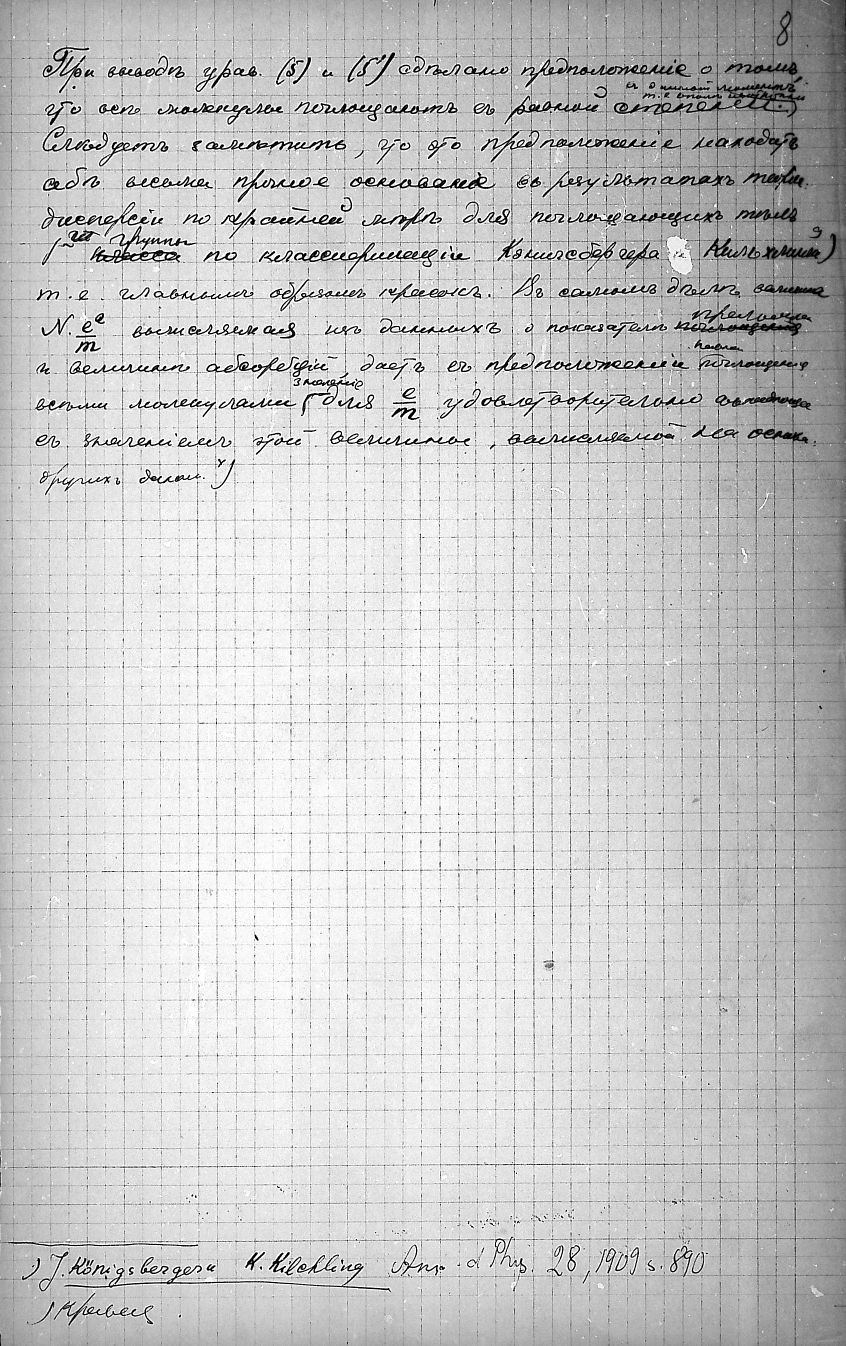 8
При выводѣ урав. (5) и (5') сдѣлано предположеніе о томъ,
что всѣ молекулы поглощаютъ въ равной степени.)
Слѣдуетъ замѣтить, что это предположеніе находитъ
себѣ весьма прочное основаніе въ результатахъ теоріи
дисперсіи по крайней мѣрѣ для поглощающихъ тѣлъ
группы
класса по классификаціи Кёнигсбергера и Кильхлинга)
т.е. главнымъ образомъ красокъ. Въ самомъ дѣлѣ величина
преломленія
N e²/m вычисляемая изъ данныхъ о показателѣ поглощенія
и величинѣ абсорбціи, даетъ въ предположеніи поглощенія
значеніе
всѣми молекулами для e/m удовлетворительно
съ значеніемъ этой величины, вычисляемой на основа.
другихъ данн.)
) J. Königsberger u K. Kilchling Ann. d Phys. 28, 1909 s. 890